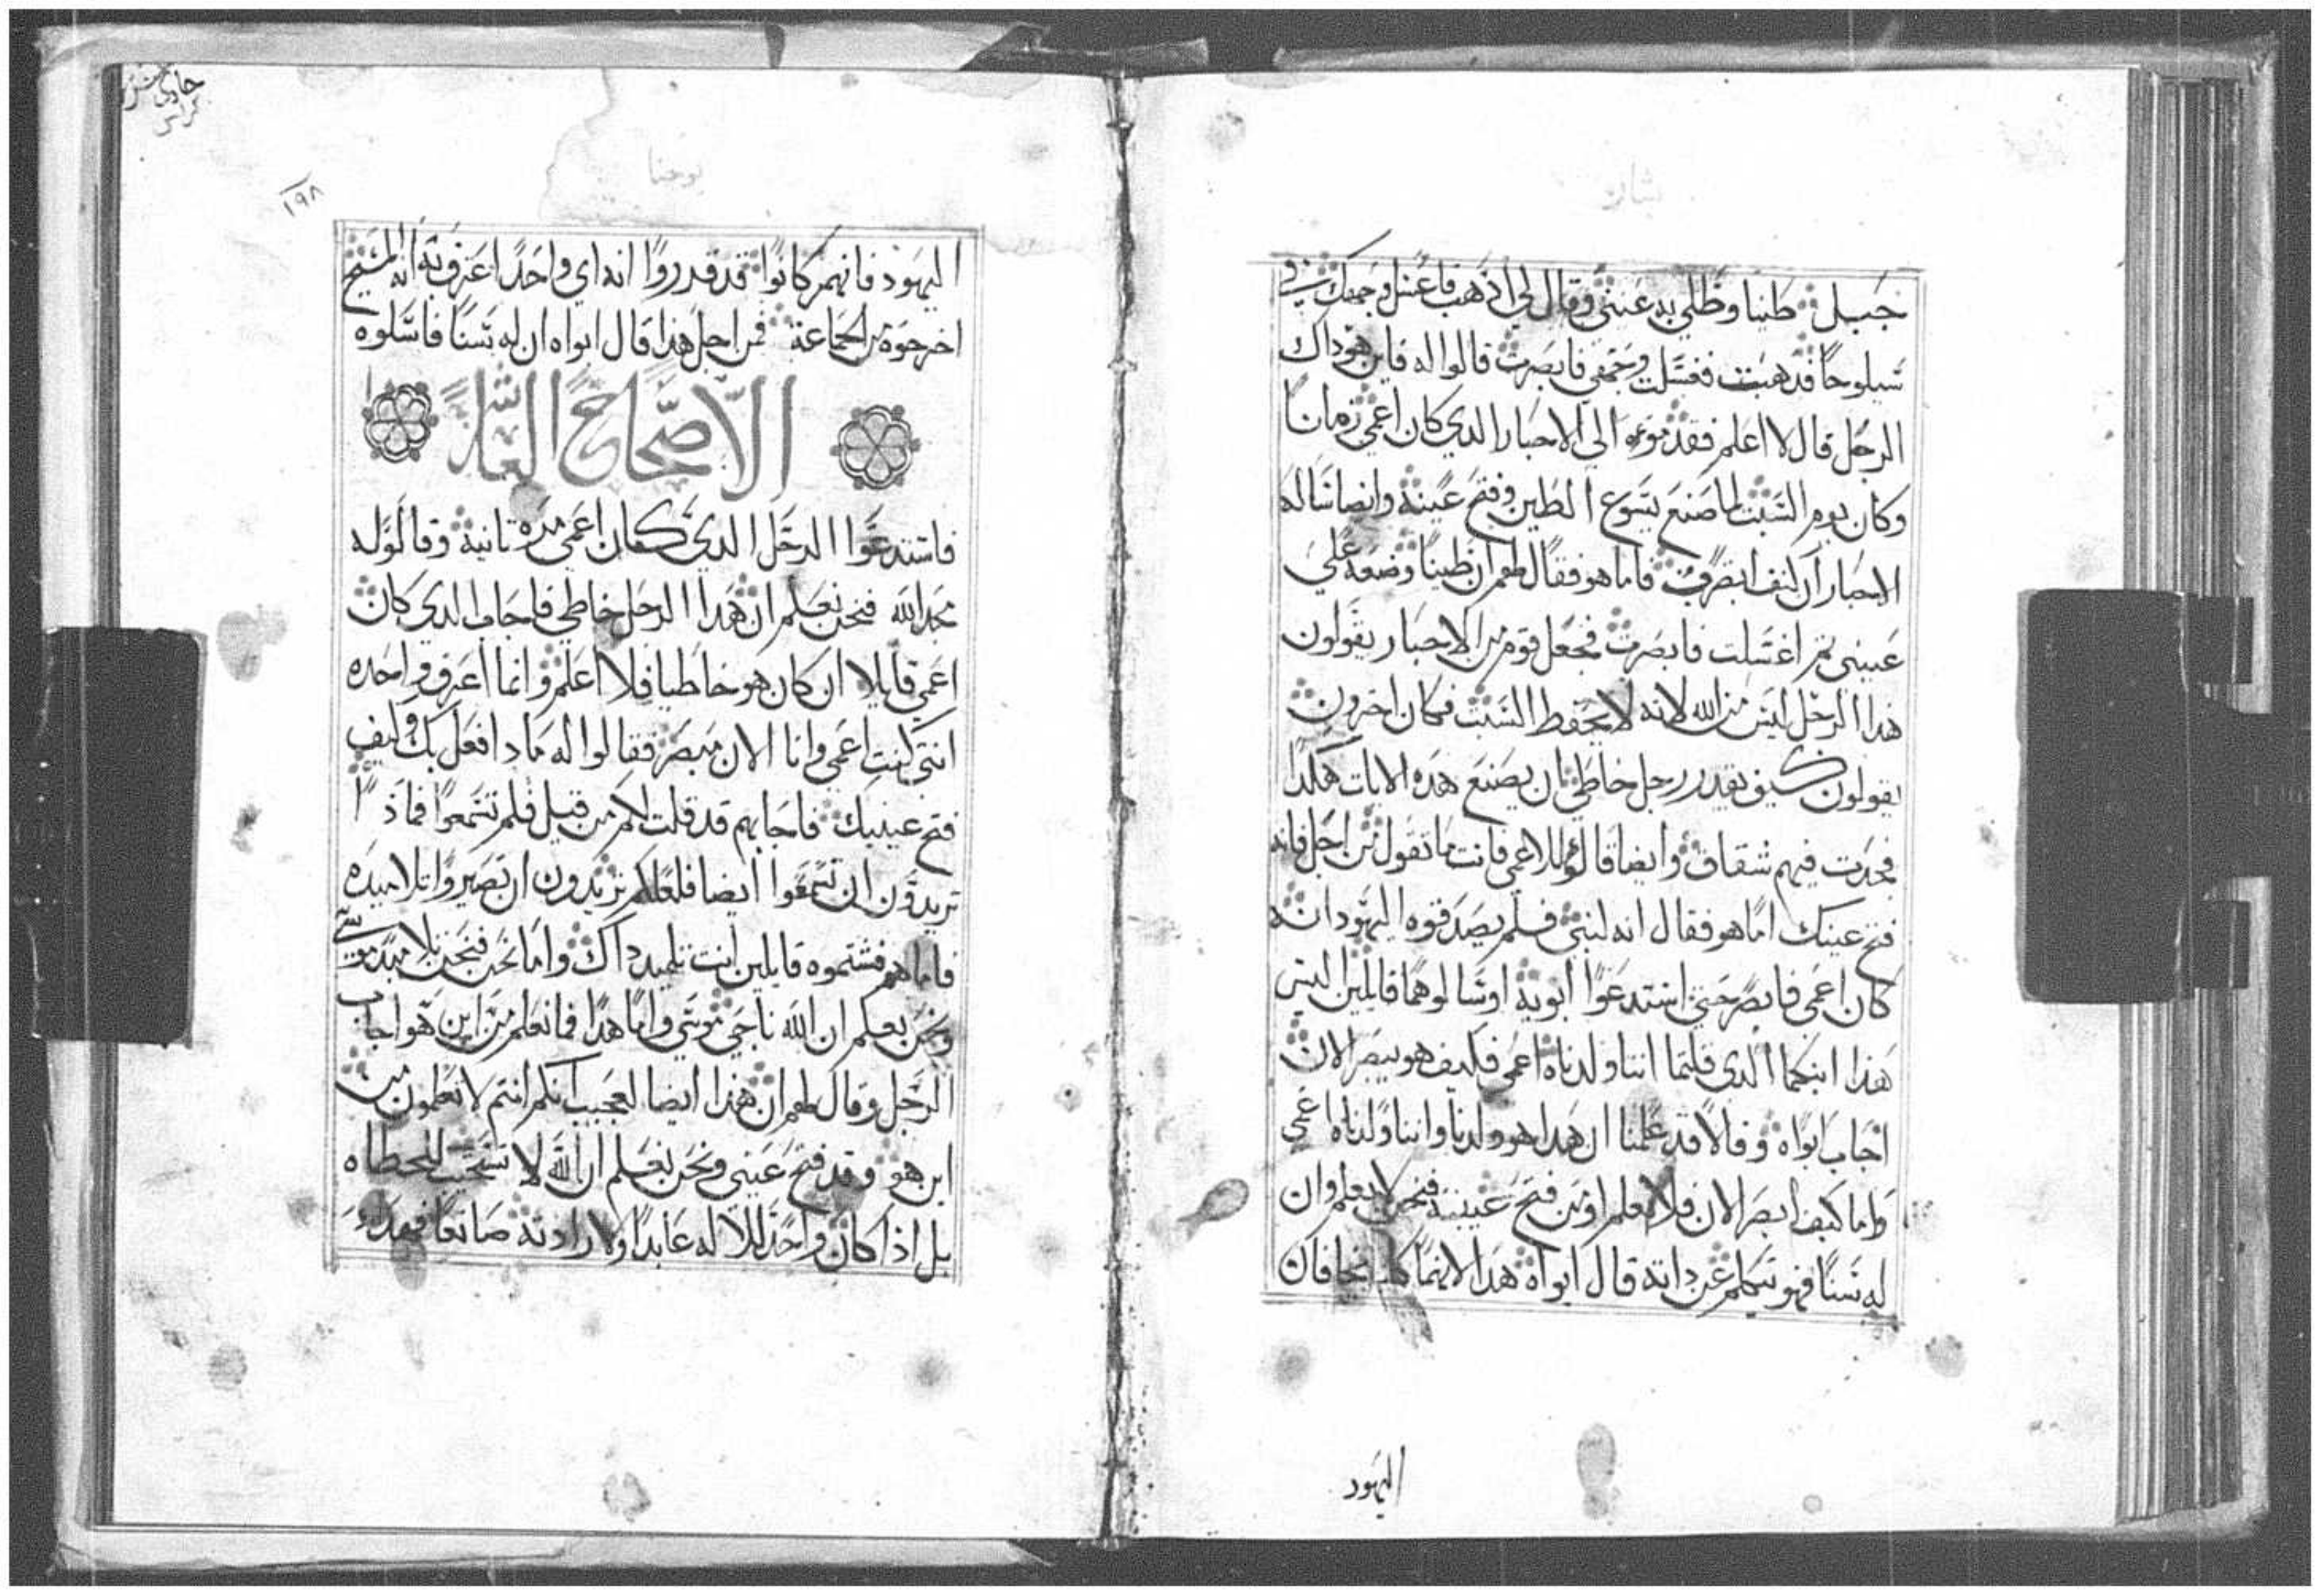 بشارة
جبل طينا وطلي به عيني وقال لي اذهب فاغسل وجهك في
سيلوحا فذهبت فغسلت وجهي فابصرت قالوا له فاين هو داك
الرجل قال لا اعلم فقدموه الي الاحبار الدي كان اعمي زمانا
وكان يوم السبت لما صنع يسوع الطين وفتح عينيه وايضا ساله
الاحبار ان كيف ابصرت فاما هو فقال لهم ان طينا وضعه علي
عيني ثم اغتسلت فابصرت فجعل قوم من الاحبار يقولون
هدا الرجل ليس من الله لانه لا يحفظ السبت فكان اخرون
يقولون كيف يقدر رجل خاطي ان يصنع هده الايات هكدا
فحدت فيهم شقاق وايضا قالوا للاعمي فانت ما تقول من اجل فانه
فتح عينك اما هو فقال انه لنبي فلم يصدقوه اليهود انه
كان اعمي فابصر حتي استدعوا ابويه اوسالوهما قايلين اليس
هذا ابنكما الدي قلتما اننا ولدناه اعمي فكيف هو يبصر الان
اجاب ابواه وقالا قد علمنا ان هدا هو ولدنا واننا ولدناه اعمي
واما كيف ابصر الان فلا نعلم او من فتح عينيه فنحن لا نعلم وان
له سنا فهو يتكلم عن داته قال ابواه هدا لانهما كانا يخافان
اليهود
حادي عشر
كراس
١٩٨
يوحنا
اليهود فانهم كانوا قد قدروا انه اي واحدا اعترف به انه المسيح
اخرجوه من الجماعة فمن اجل هذا قال ابواه ان له سنا فاسلوه
الاصحاح
فاستدعوا الرجل الدي كان اعمي مره تانية وقالو له
مجد الله فنحن نعلم ان هدا الرجل خاطي فاجاب الدي كان
اعمي قايلا ان كان هو خاطيا فلا اعلم وانما اعرف واحده
انني كنت اعمي وانا الان مبصر فقالوا له مادا فعل بك وكيف
فتح عينيك فاجابهم قد قلت لكم من قبل فلم تسمعوا فماذا
تريدون ان تسمعوا ايضا فلعلكم تريدون ان تصيروا تلاميده
فاما هم فشتموه قايلين انت تلميد داك واما نحن فنحن تلاميد موسي
ونحن نعلم ان الله ناجي موسي واما هدا فما نعلم من اين هو اجاب
الرجل وقال لهم ان هذا ايضا لعجيب انكم انتم لا تعلمون من
اين هو وقد فتح عيني ونحن نعلم ان الله لا يستجيب للخطاه
بل اذا كان واحد للاله عابدا ولارادته صانعا فهدا